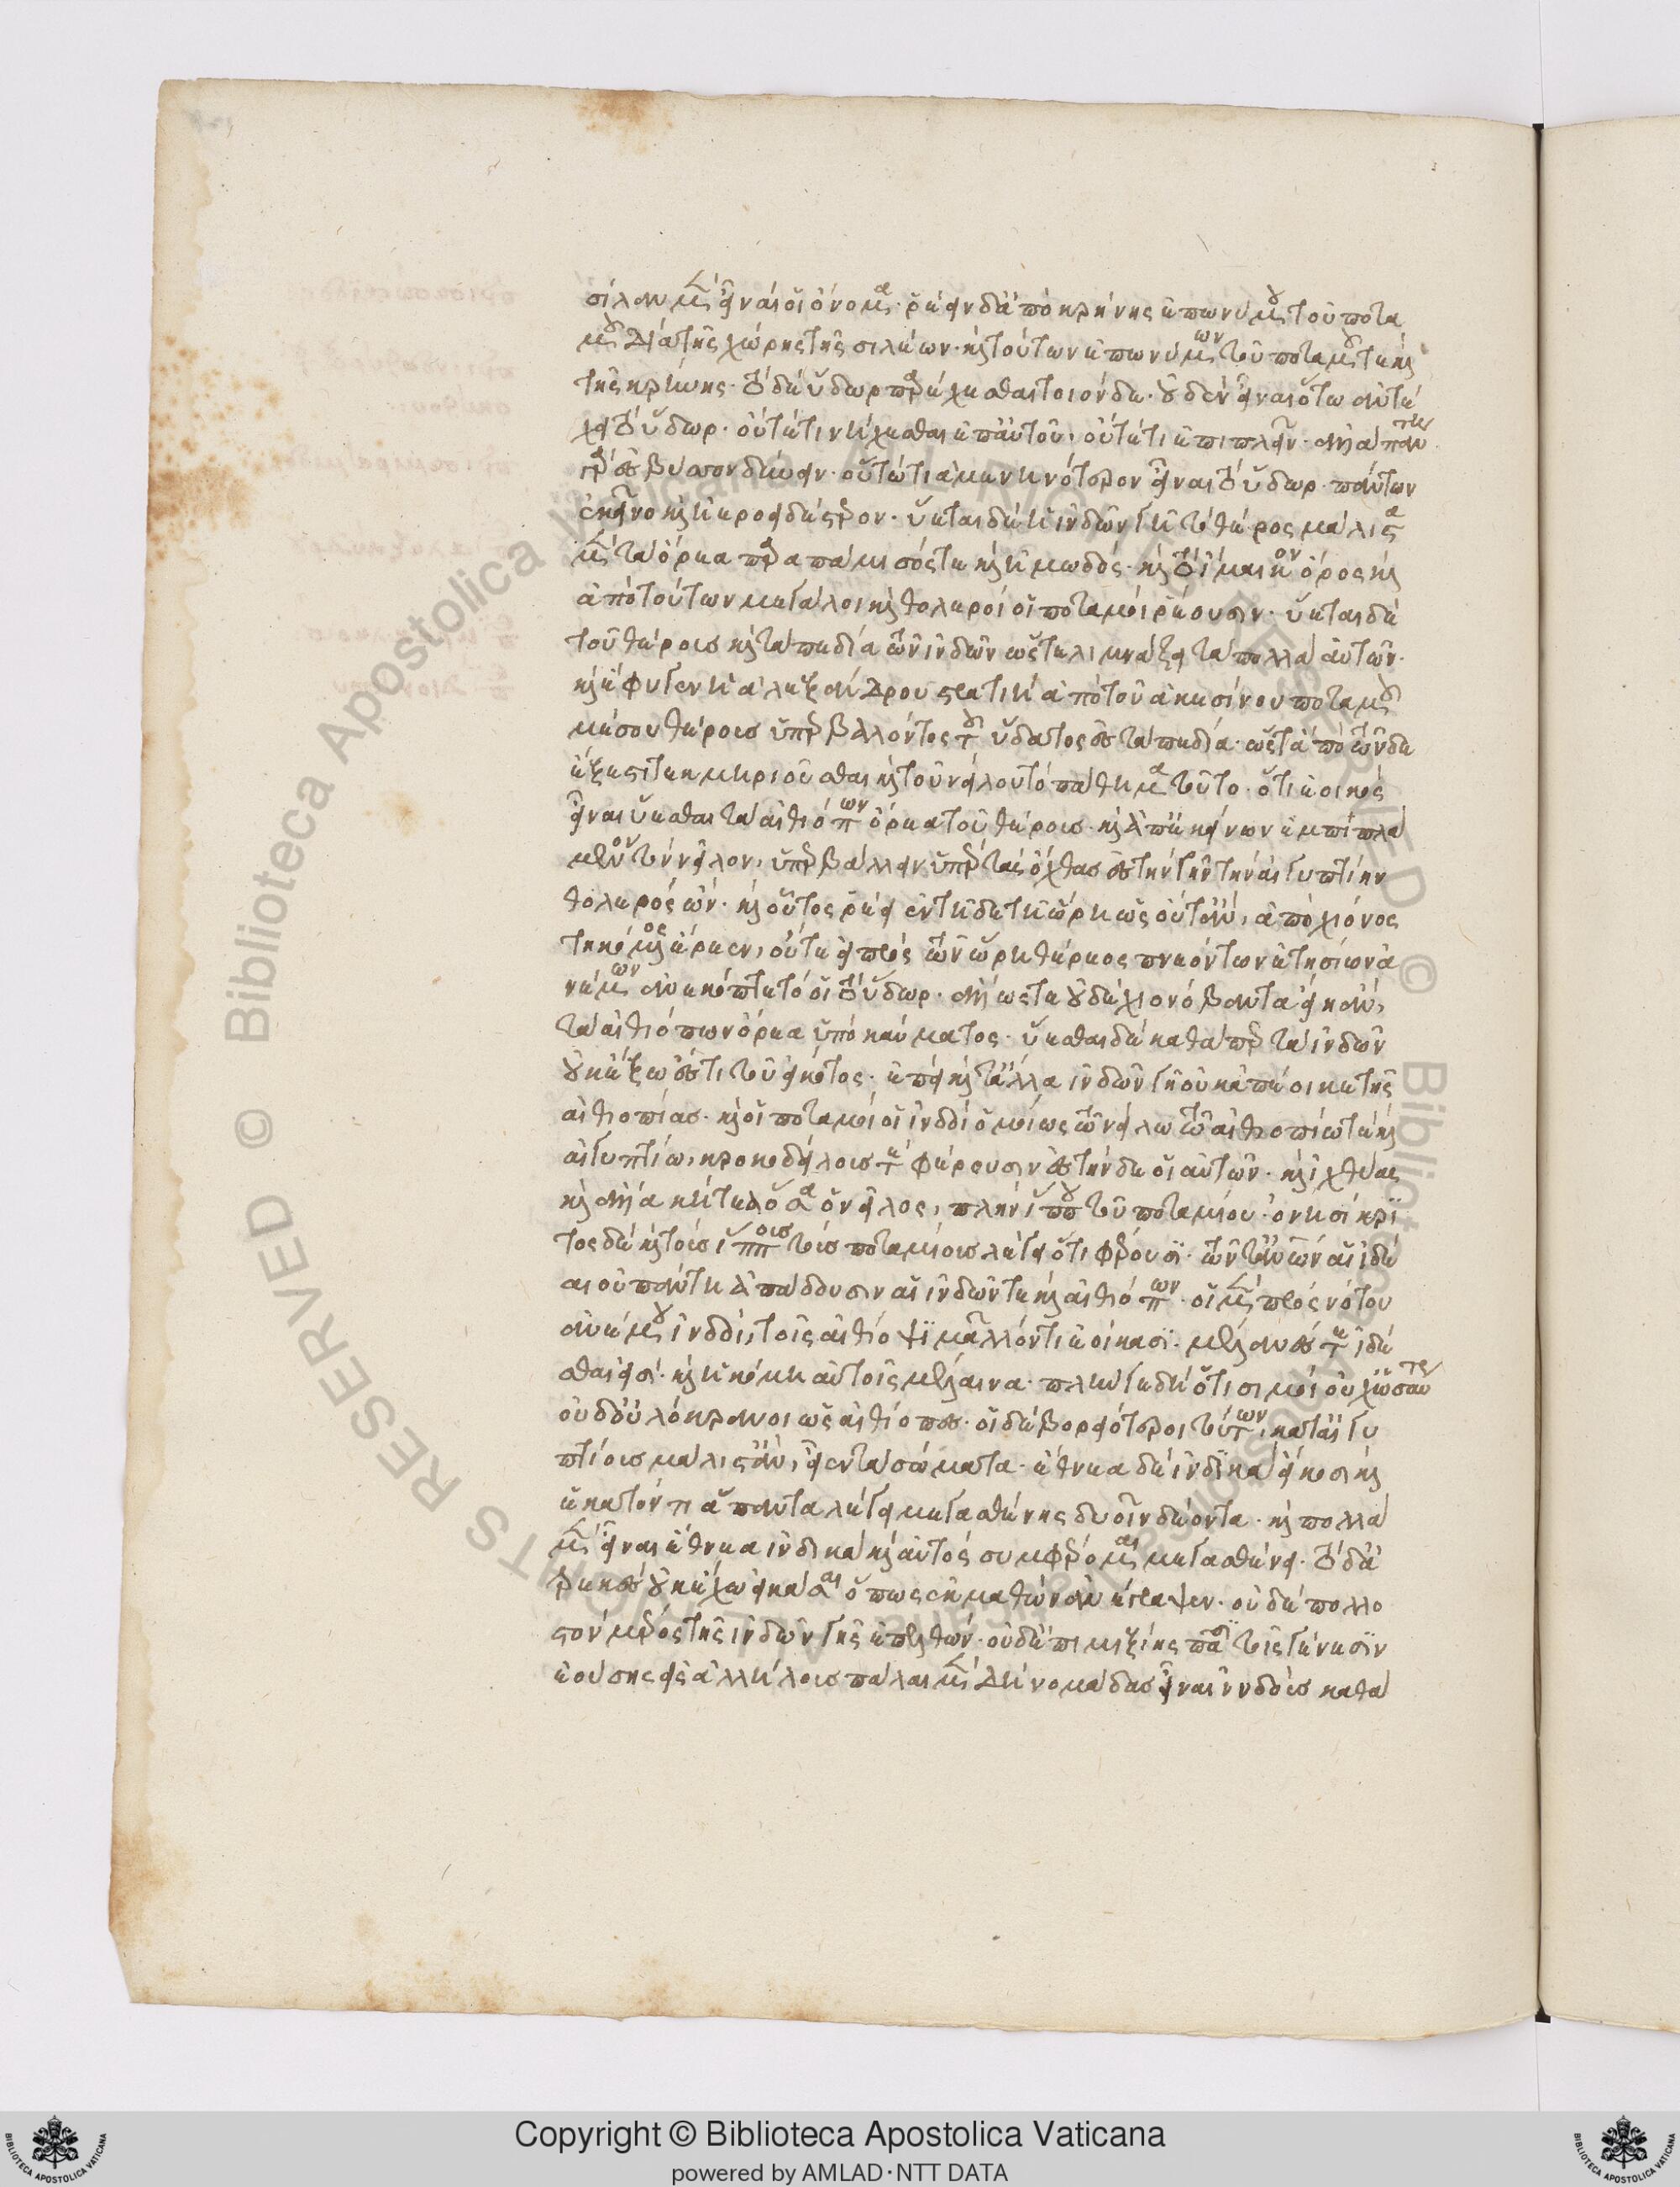 σίλαν μὲν εἶναι οἱ ὄνομα· ῥέειν δ' ἀπὸ κρήνης ἐπωνύμου τοῦ ποτα
μοῦ διὰ τῆς χώρης τῆς σιλέων· καὶ τούτων ἐπωνύμων τοῦ ποταμοῦ τε καὶ
τῆς κρήνης· τὸ δὲ ὕδωρ παρέχεσθαι τοιόνδε· οὐδὲν εἶναι ὅτω ἀντέ
χει τὸ ὕδωρ· οὔτέ τι νήχεσθαι ἐπ' αὐτοῦ, οὔτέ τι ἐπιπλεῖν· ἀλλὰ πάντα
γὰρ ἐς βυσσὸν δύειν· οὕτώ τι ἀμενηνότερον εἶναι τὸ ὕδωρ πάντων
ἐκεῖνο καὶ ἠεροειδέστερον· ὕεται δὲ ἡ ἰνδῶν γῆ τοῦ θέρος μάλιστα
μὲν τὰ ὄρεα παραπάμισός τε καὶ ἠμωδός· καὶ τὸ ἰμαικὸν ὄρος καὶ
ἀπὸ τούτων μεγάλοι καὶ θολεροὶ οἱ ποταμοὶ ῥέουσιν· ὕεται δὲ
τοῦ θέρους καὶ τὰ πεδία τῶν ἰνδῶν ὥστε λιμνάζει τὰ πολλὰ αὐτῶν·
καὶ ἔφυγεν ἡ ἀλεξάνδρου στρατιὴ ἀπὸ τοῦ ἀκεσίνου ποταμοῦ
μέσου θέρους ὑπερβαλόντος τοῦ ὕδατος ἐς τὰ πεδία· ὥστ' ἀπὸ τῶνδε
ἔξεστι τεκμηριοῦσθαι καὶ τοῦ νείλου τὸ πάθημα τοῦτο· ὅτι ἐοικὸς
εἶναι ὕεσθαι τὰ αἰθιόπων ὄρεα τοῦ θέρους· καὶ ἀπ' ἐκείνων ἐμπιπλά
μενον τὸν νεῖλον, ὑπερβάλλειν ὑπὲρ τὰς ὄχθας ἐς τὴν γῆν τὴν αἰγυπτίην
θολερὸς ὤν· καὶ οὗτος ῥέει ἐν τῆδε τῆ ὥρη ὡς οὔτ' ἂν, ἀπὸ χιόνος
τηκομένης ἔρεεν, οὔτε εἰ πρὸς τῶν ὥρη θέρεος πνεόντων ἐτησίων ἀ
νέμων ἀνεκόπτετό οἱ τὸ ὕδωρ· ἄλλως τε οὐδὲ χιονόβλητα εἴη ἂν,
τὰ αἰθιόπων ὄρεα ὑπὸ καύματος· ὕεσθαι δὲ καθάπερ τὰ ἰνδῶν
οὐκ ἔξω ἐστι τοῦ εἰκότος· ἐπεὶ καὶ τἄλλα ἰνδῶν γῆ οὐκ ἀπέοικε τῆς
αἰθιοπίας· καὶ οἱ ποταμοὶ οἱ ἰνδοὶ ὁμοίως τῶ νείλω τῶ αἰθιοπίω τέ καὶ
αἰγυπτίω, κροκοδείλους τὲ φέρουσιν ἔστιν δὲ οἳ αὐτῶν· καὶ ἰχθύας
καὶ ἄλλα κήτεα ὅσα ὁ νεῖλος, πλὴν ἵππου τοῦ ποταμίου· ὀνησίκρι
τος δὲ καὶ τοὺς ἵππους τοὺς ποταμίους λέγει ὅτι φέρουσι· τῶν τ' ἀνθρώπων αἱ ἰδέ
αι οὐ πάντη ἀπάδουσιν αἱ ἰνδῶν τε καὶ αἰθιόπων· οἱ μὲν πρὸς νότου
ἀνέμου ἰνδοὶ, τοῖς αἰθίοψι μᾶλλόν τι ἐοίκασι· μέλανές τε ἰδέ
σθαι εἰσὶ· καὶ ἡ κόμη αὐτοῖς μέλαινα· πλήν γε δὴ ὅτι σιμοὶ οὐχ ὡσαύτως
οὐδ' οὐλόκρανοι ὡς αἰθίοπες· οἱ δὲ βορειότεροι τούτων, κατ' αἰγυ
πτίους μάλιστ' ἂν, εἶεν τὰ σώματα· ἔθνεα δὲ ἰνδικὰ εἴκοσι καὶ
ἑκατόν τι ἅπαντα λέγει μεγασθένης δυοῖν δέοντα· καὶ πολλὰ
μὲν εἶναι ἔθνεα ἰνδικὰ καὶ αὐτὸς συμφέρομαι μεγασθένει· τὸ δ' ἀ
τρεκὲς οὐκ ἔχω εἰκάσαι ὅπως ἐκμαθὼν ἀνέγραψεν· οὐδὲ πολλο
στὸν μέρος τῆς ἰνδῶν γῆς ἐπελθών· οὐδ' ἐπιμιξίης πᾶσι τοῖς γένεσιν
ἐούσης ἐς ἀλλήλους πάλαι μὲν δὴ νομάδας εἶναι ἰνδοὺς καθά